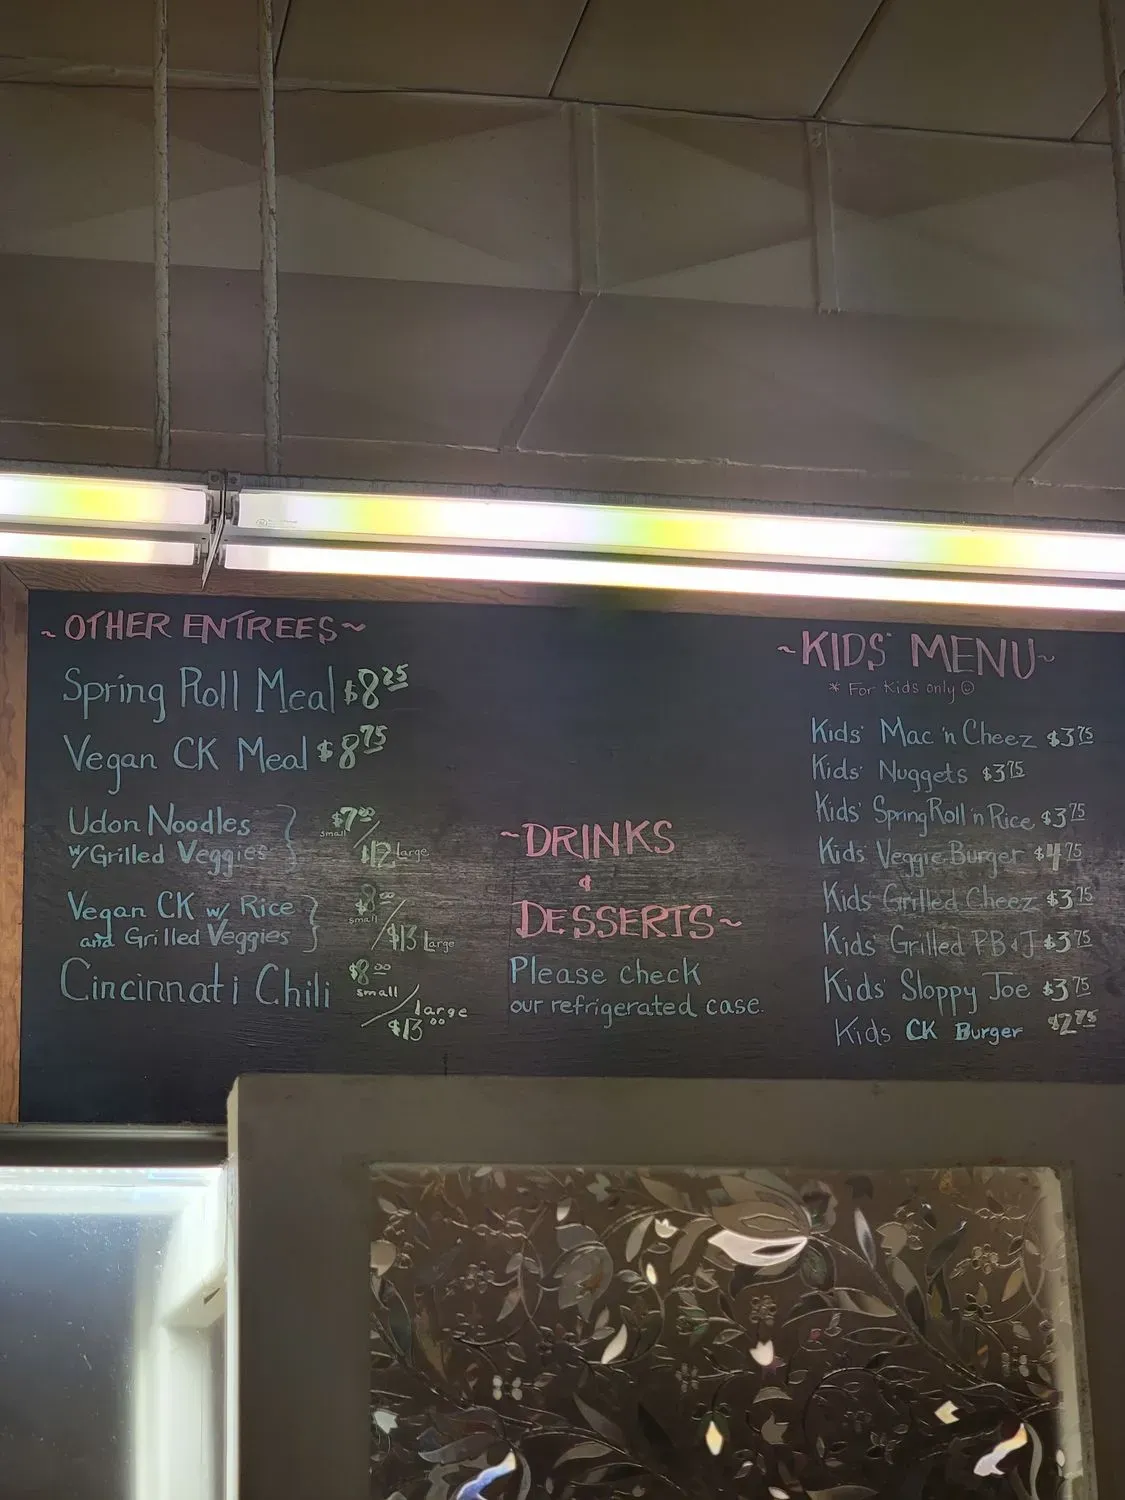 ~ OTHER ENTREES ~
Spring Roll Meal $8.25
Vegan CK Meal $8.75
Udon Noodles $7.00
small
w/ Grilled Veggies $12 large
Vegan CK w/ Rice $8.00
small
and Grilled Veggies $13 Large
Cincinnati Chili $8.00
small / large
$13.00
~ DRINKS
&
DESSERTS ~
Please check
our refrigerated case.
~ KIDS' MENU ~
* For Kids only ☺
Kids' Mac 'n Cheez $3.75
Kids' Nuggets $3.75
Kids' Spring Roll 'n Rice $3.75
Kids' Veggie Burger $4.75
Kids' Grilled Cheez $3.75
Kids' Grilled PB & J $3.75
Kids' Sloppy Joe $3.75
Kids CK Burger $2.75